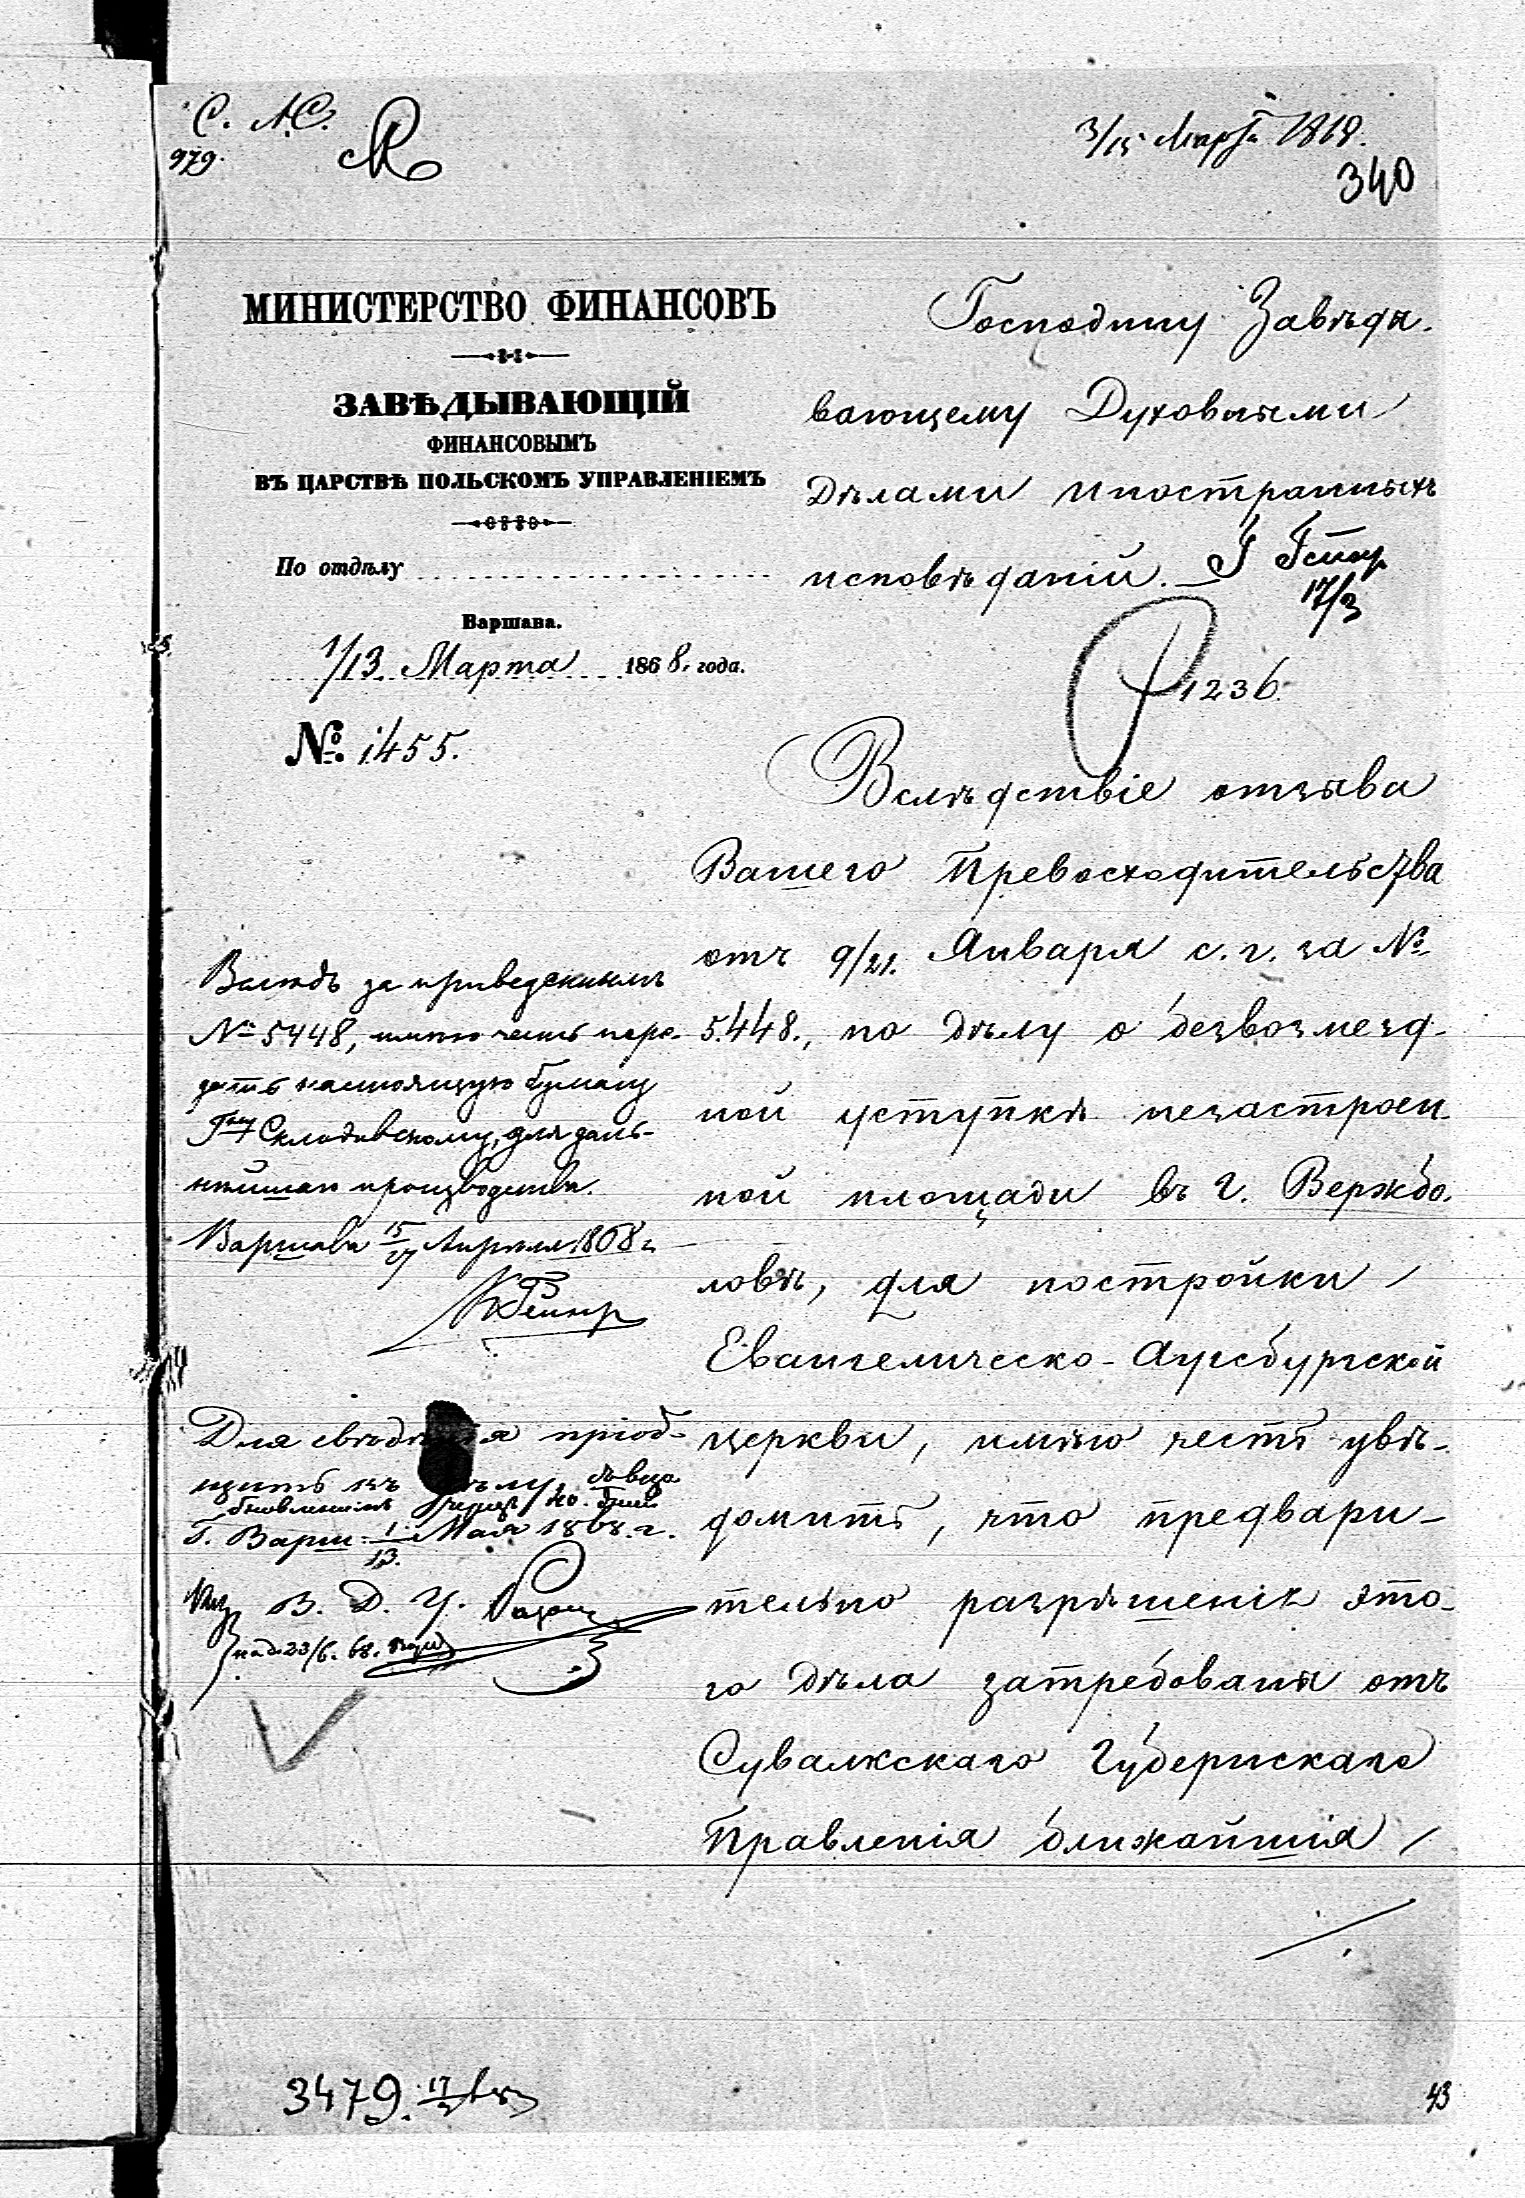 С. А.С.
979.
3/15 Марта 1868.
340
МИНИСТЕРСТВО ФИНАНСОВЪ
ЗАВѢДЫВАЮЩІЙ
ФИНАНСОВЫМЪ
ВЪ ЦАРСТВѢ ПОЛЬСКОМЪ УПРАВЛЕНІЕМЪ
По отдѣлу
Варшава.
1/13. Марта 1868. года.
№ 1455.
Господину Завѣды-
вающему Духовными
Дѣлами иностранныхъ
исповѣданій.
17/3
1236.
Вслѣдствіе отзыва
Вашего Превосходительства
отъ 9/21. Января с. г. за №
5.448., по дѣлу о безвозмезд-
ной уступкѣ незастроен-
ной площади въ г. Вержбо-
ловѣ, для постройки
Евангелическо-Аугсбургской
церкви, имѣю честь увѣ-
домить, что предвари-
тельно разрѣшенія это-
го дѣла затребованы отъ
Сувалкскаго Губернскаго
Правленія ближайшія
Вслѣдъ за приведеннымъ
№ 5448, имѣю честь пере-
дать настоящую бумагу
Гну Склодовскому, для даль-
нѣйшаго производства.
Варшава 15/27 Апрѣля 1868 г.
Для свѣдѣнія пріоб-
щить къ дѣлу,
Г. Варш. 1/13. Мая 1868. г.
В. Д. У.
23/6. 68.
3479. 17/3
43